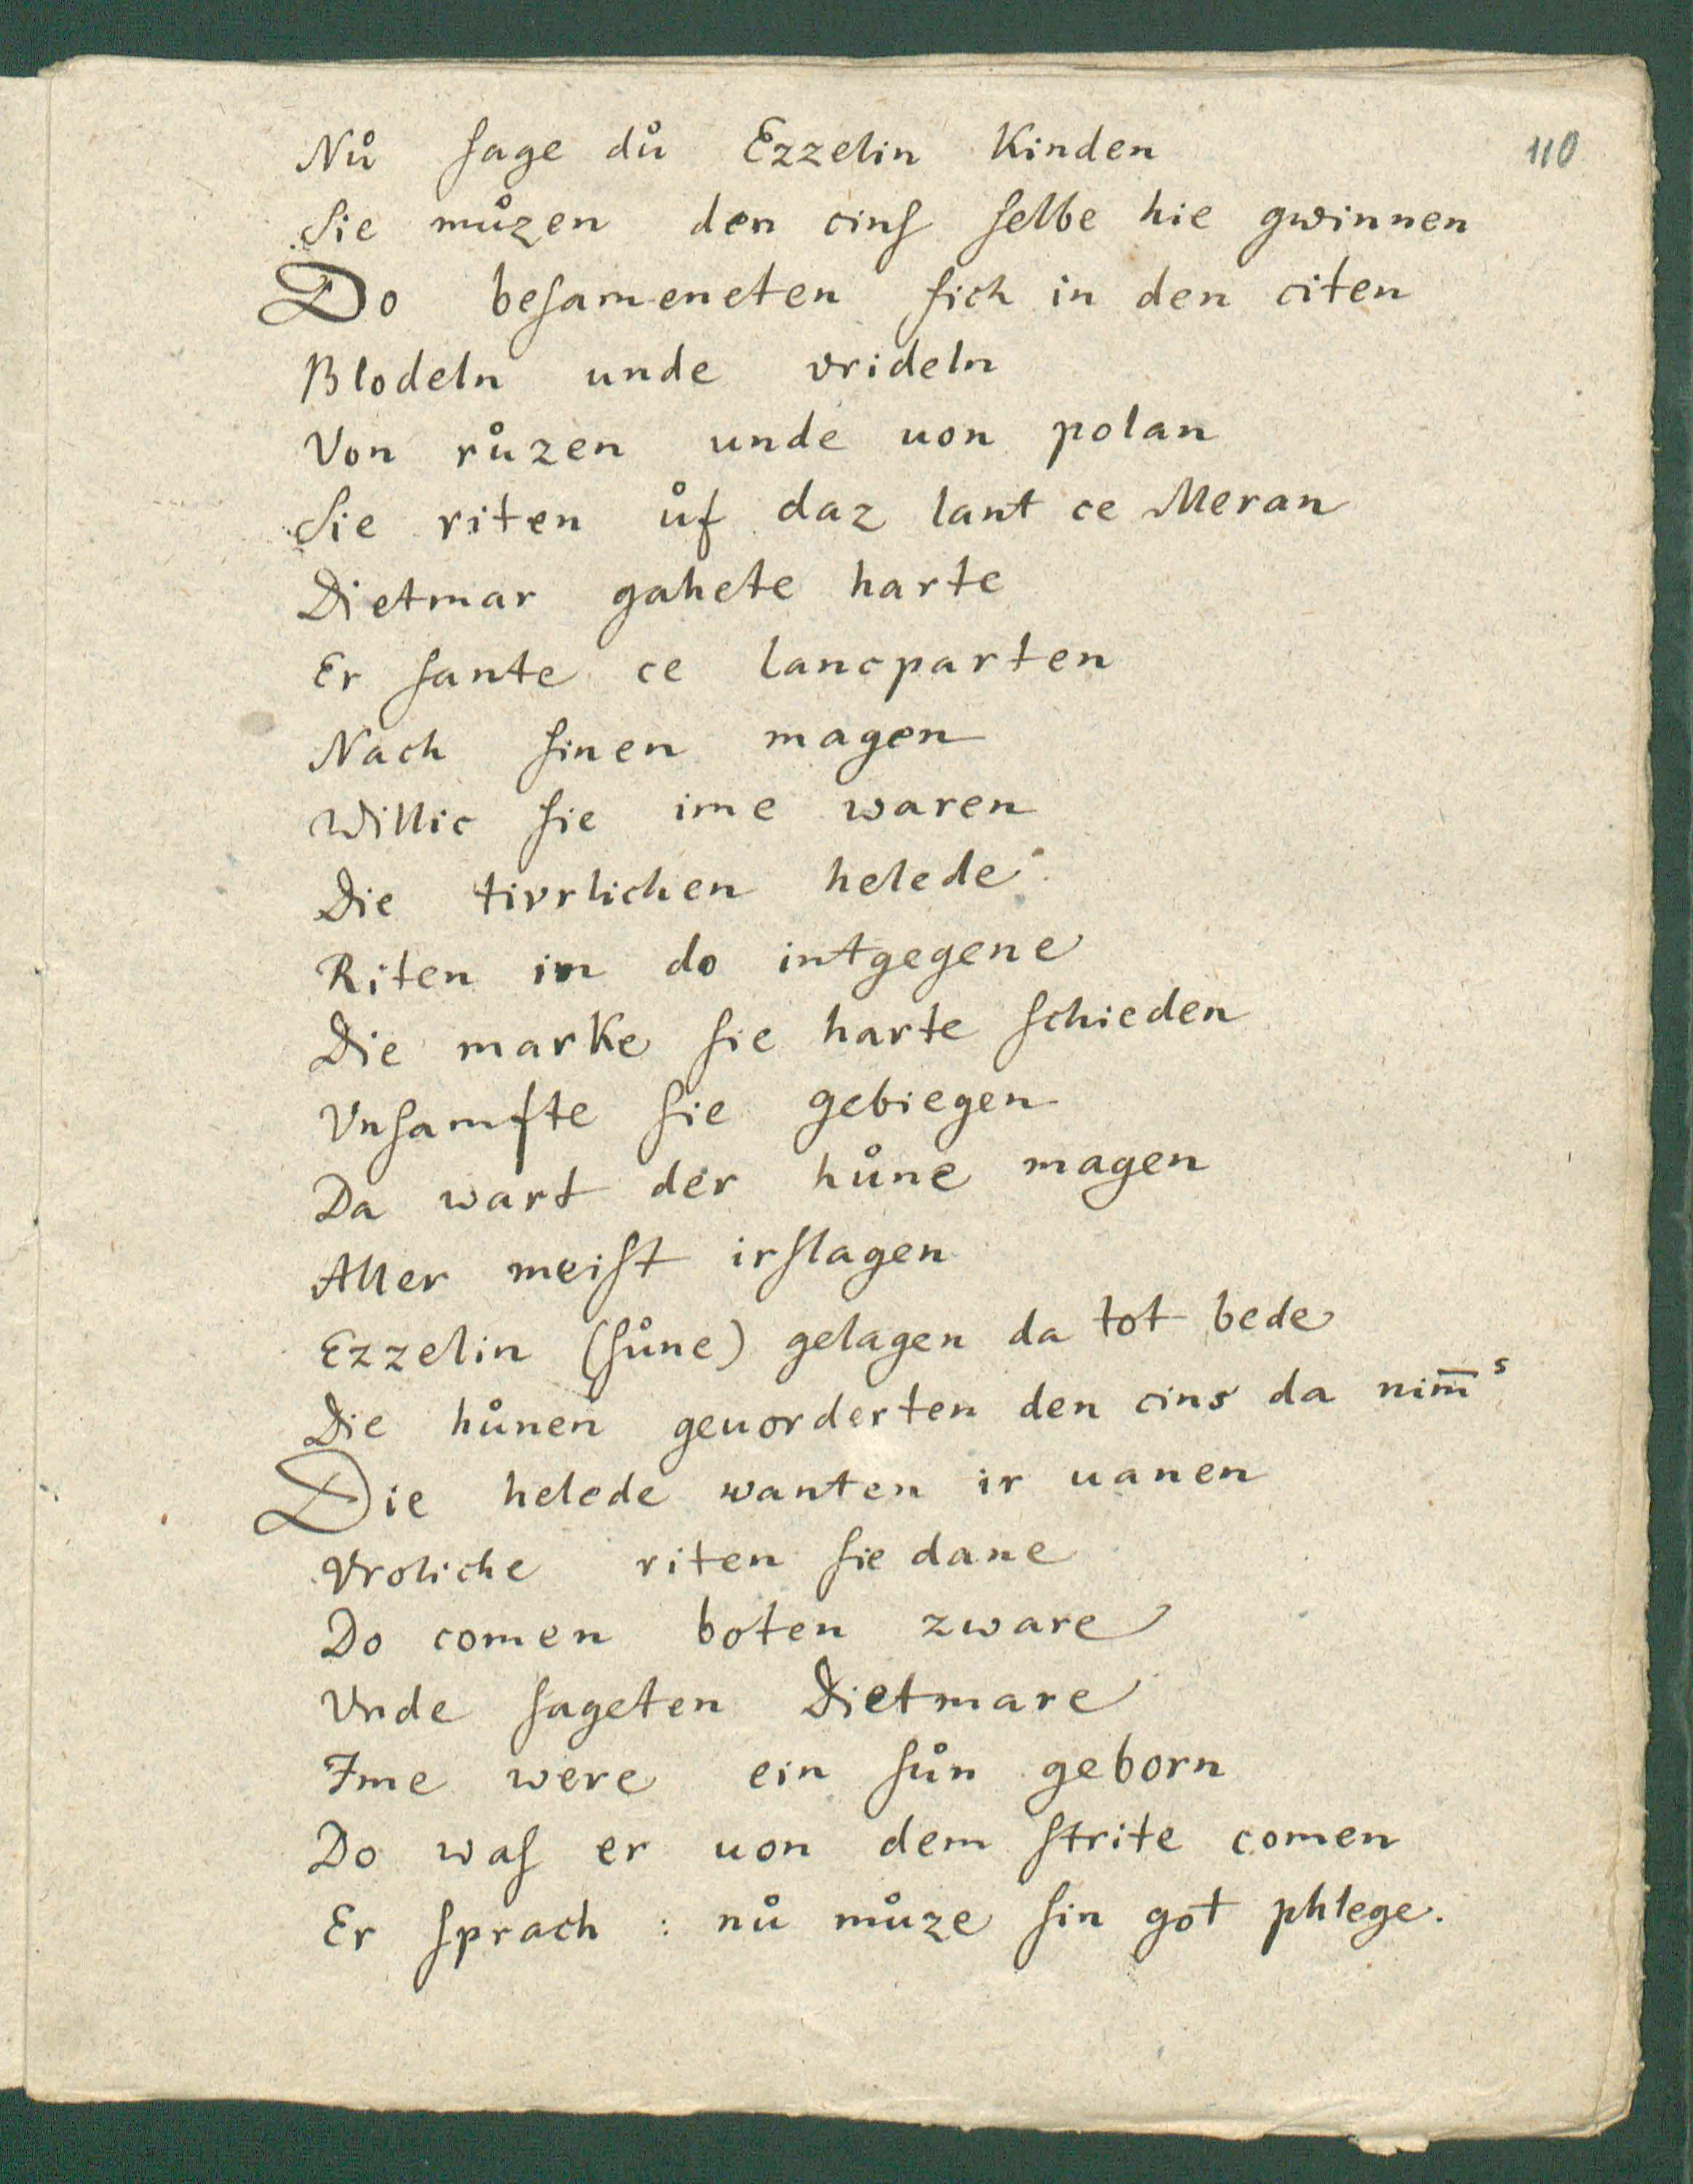 110
Nů ſage dů Ezzelin Kinden
Sie můzen den cinſ ſelbe hie gwinnen
Do beſameneten ſich in den citen
Blodeln unde vrideln
Von růzen unde uon polan
Sie riten ůf daz lant ce Meran
Dietmar gahete harte
Er ſante ce lancparten
Nach ſinen magen
Willic ſie ime waren
Die tivrlichen helede
Riten in do intgegene
Die marke ſie harte ſchieden
Vnſamfte ſie gebiegen
Da wart der hůne magen
Aller meiſt irſlagen
Ezzelin (ſůne) gelagen da tot bede
Die hůnen geuorderten den cins da nim̄ˢ
Die helede wanten ir uanen
Vroliche riten ſie dane
Do comen boten zware
Vnde ſageten Dietmare
Ime were ein ſůn geborn
Do waſ er uon dem ſtrite comen
Er ſprach : nů můze ſin got phlege.